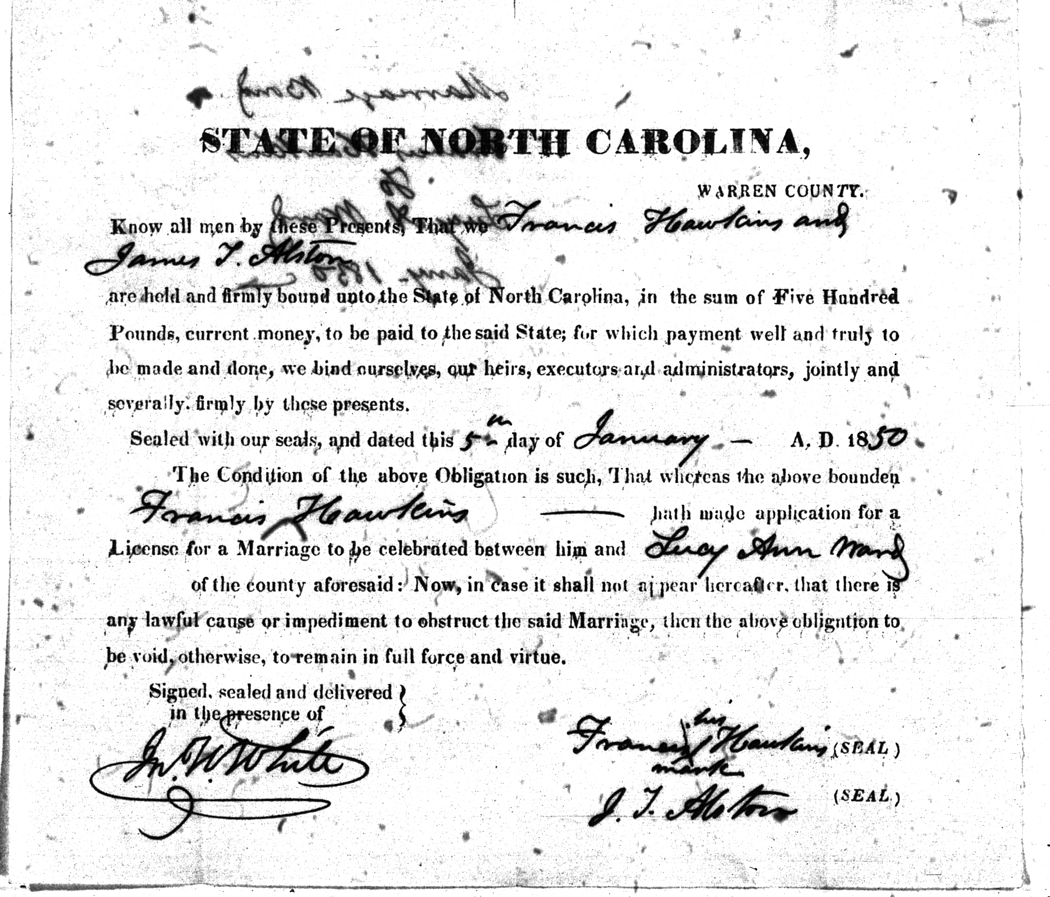 Marriage Bond
STATE OF NORTH CAROLINA,
to
WARREN COUNTY.
Know all men by these Presents, That we Francis Hawkins and
James T. Alston
Jany. 1850
are held and firmly bound unto the State of North Carolina, in the sum of Five Hundred
Pounds, current money, to be paid to the said State; for which payment well and truly to
be made and done, we bind ourselves, our heirs, executors and administrators, jointly and
severally. firmly by these presents.
Sealed with our seals, and dated this 5th day of January — A. D. 1850
The Condition of the above Obligation is such, That whereas the above bounden
Francis Hawkins — hath made application for a
License for a Marriage to be celebrated between him and Lucy Ann Ward
of the county aforesaid: Now, in case it shall not appear hereafter, that there is
any lawful cause or impediment to obstruct the said Marriage, then the above obligation to
be void, otherwise, to remain in full force and virtue.
Signed, sealed and delivered
in the presence of
his
Francis Hawkins (SEAL)
mark
Jn. W. White
J. T. Alston (SEAL)